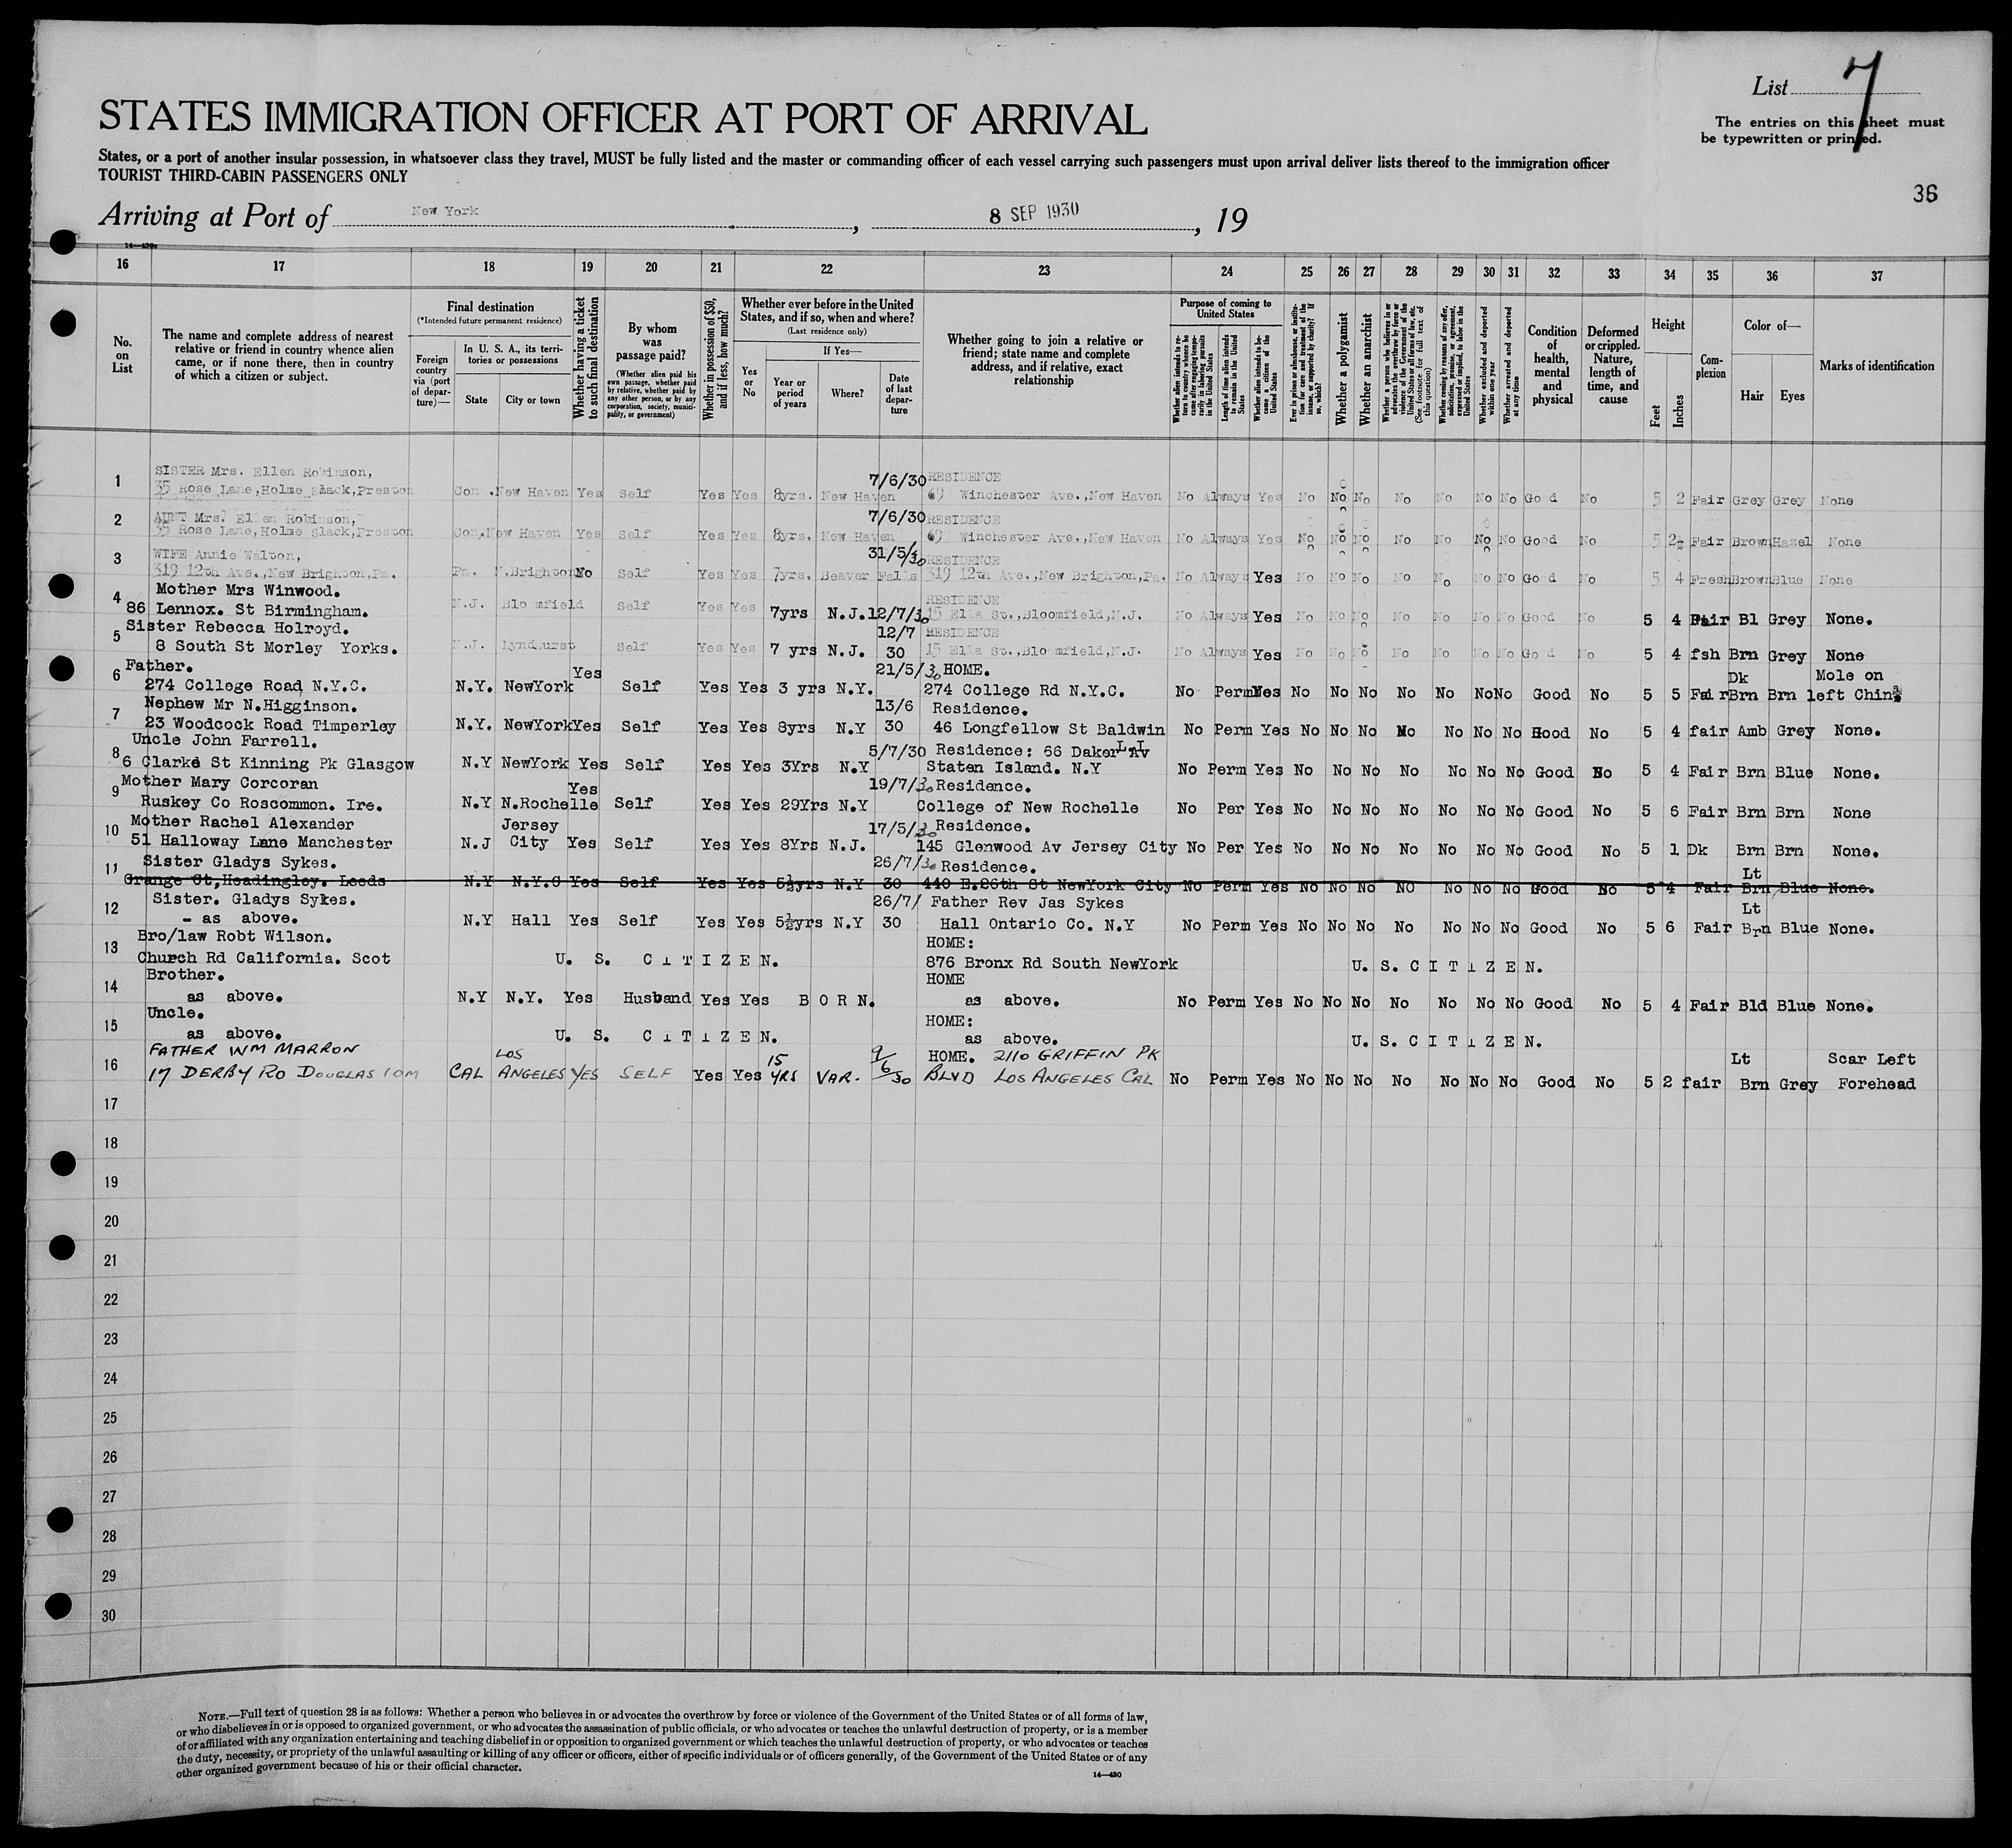 List 7
The entries on this sheet must
be typewritten or printed.
STATES IMMIGRATION OFFICER AT PORT OF ARRIVAL
States, or a port of another insular possession, in whatsoever class they travel, MUST be fully listed and the master or commanding officer of each vessel carrying such passengers must upon arrival deliver lists thereof to the immigration officer
TOURIST THIRD-CABIN PASSENGERS ONLY
36
Arriving at Port of New York, 8 SEP 1930, 19
14—430
16 17 18 19 20 21 22 23 24 25 26 27 28 29 30 31 32 33 34 35 36 37
No. on List
The name and complete address of nearest relative or friend in country whence alien came, or if none there, then in country of which a citizen or subject.
Final destination
(*Intended future permanent residence)
Foreign country via (port of departure)—
In U. S. A., its territories or possessions
State City or town
Whether having a ticket to such final destination
By whom was passage paid?
(Whether alien paid his own passage, whether paid by relative, whether paid by any other person, or by any corporation, society, municipality, or government)
Whether in possession of $50, and if less, how much?
Whether ever before in the United States, and if so, when and where?
(Last residence only)
Yes or No
If Yes—
Year or period of years
Where?
Date of last departure
Whether going to join a relative or friend; state name and complete address, and if relative, exact relationship
Purpose of coming to United States
Whether alien intends to return to country whence he came after engaging temporarily in laboring pursuits in the United States
Length of time alien intends to remain in the United States
Whether alien intends to become a citizen of the United States
Ever in prison or almshouse, or institution for care and treatment of the insane, or supported by charity? If so, which?
Whether a polygamist
Whether an anarchist
Whether a person who believes in or advocates the overthrow by force or violence of the Government of the United States or all forms of law, etc. (See footnote for full text of this question)
Whether coming by reason of any offer, solicitation, promise, or agreement, expressed or implied, to labor in the United States
Whether excluded and deported within one year
Whether arrested and deported at any time
Condition of health, mental and physical
Deformed or crippled. Nature, length of time, and cause
Height
Feet Inches
Complexion
Color of—
Hair Eyes
Marks of identification
1 SISTER Mrs. Ellen Robinson, 7/6/30 RESIDENCE
35 Rose Lane, Holme Slack, Preston Con. New Haven Yes Self Yes Yes 8yrs. New Haven 69 Winchester Ave., New Haven No Always Yes No No No No No No No Good No 5 2 Fair Grey Grey None
2 AUNT Mrs. Ellen Robinson, 7/6/30 RESIDENCE
35 Rose Lane, Holme Slack, Preston Con. New Haven Yes Self Yes Yes 8yrs. New Haven 69 Winchester Ave., New Haven No Always Yes No No No No No No No Good No 5 2½ Fair Brown Hazel None
3 WIFE Annie Walton, 31/5/30 RESIDENCE
319 12th Ave., New Brighton, Pa. Pa. N.Brighton No Self Yes Yes 7yrs. Beaver Falls 319 12th Ave., New Brighton, Pa. No Always Yes No No No No No No No Good No 5 4 Fresh Brown Blue None
4 Mother Mrs Winwood. RESIDENCE
86 Lennox. St Birmingham. N.J. Blo mfield Self Yes Yes 7yrs N.J. 12/7/30 15 Ella St., Bloomfield, N.J. No Always Yes No No No No No No No Good No 5 4 Fair Bl Grey None.
5 Sister Rebecca Holroyd. 12/7 RESIDENCE
8 South St Morley Yorks. N.J. Lyndhurst Self Yes Yes 7 yrs N.J. 30 15 Ella St., Bloomfield, N.J. No Always Yes No No No No No No No Good No 5 4 fsh Brn Grey None
6 Father. Yes 21/5/30 HOME. Dk Mole on
274 College Road N.Y.C. N.Y. NewYork Self Yes Yes 3 yrs N.Y. 274 College Rd N.Y.C. No Perm Yes No No No No No No No Good No 5 5 Fair Brn Brn left Chin.
7 Nephew Mr N.Higginson. 13/6 Residence.
23 Woodcock Road Timperley N.Y. NewYork Yes Self Yes Yes 8yrs N.Y 30 46 Longfellow St Baldwin L.I No Perm Yes No No No No No No No Good No 5 4 fair Amb Grey None.
8 Uncle John Farrell. 5/7/30 Residence: 66 Daker Av
6 Clarke St Kinning Pk Glasgow N.Y NewYork Yes Self Yes Yes 3Yrs N.Y Staten Island. N.Y No Perm Yes No No No No No No No Good No 5 4 Fair Brn Blue None.
9 Mother Mary Corcoran Yes 19/7/30 Residence.
Ruskey Co Roscommon. Ire. N.Y N.Rochelle Self Yes Yes 29Yrs N.Y College of New Rochelle No Per Yes No No No No No No No Good No 5 6 Fair Brn Brn None
10 Mother Rachel Alexander Jersey 17/5/30 Residence.
51 Halloway Lane Manchester N.J City Yes Self Yes Yes 8Yrs N.J. 145 Glenwood Av Jersey City No Per Yes No No No No No No No Good No 5 1 Dk Brn Brn None.
11 Sister Gladys Sykes. 26/7/30 Residence. Lt
Grange Ct, Headingley. Leeds N.Y N.Y.C Yes Self Yes Yes 5½yrs N.Y 30 440 E.26th St NewYork City No Perm Yes No No No No No No No Good No 5 4 Fair Brn Blue None.
12 Sister. Gladys Sykes. 26/7/ Father Rev Jas Sykes Lt
- as above. N.Y Hall Yes Self Yes Yes 5½yrs N.Y 30 Hall Ontario Co. N.Y No Perm Yes No No No No No No No Good No 5 6 Fair Brn Blue None.
13 Bro/law Robt Wilson. HOME:
Church Rd California. Scot U. S. CITIZEN. 876 Bronx Rd South NewYork U. S. CITIZEN.
14 Brother. HOME
as above. N.Y N.Y. Yes Husband Yes Yes BORN. as above. No Perm Yes No No No No No No No Good No 5 4 Fair Bld Blue None.
15 Uncle. HOME:
as above. U. S. CITIZEN. as above. U. S. CITIZEN.
16 FATHER WM MARRON LOS 15 9/6/30 HOME. 2110 GRIFFIN PK Lt Scar Left
17 DERBY RD DOUGLAS IOM CAL ANGELES YES SELF Yes Yes YRS VAR. BLVD LOS ANGELES CAL No Perm Yes No No No No No No No Good No 5 2 fair Brn Grey Forehead
17
18
19
20
21
22
23
24
25
26
27
28
29
30
NOTE.—Full text of question 28 is as follows: Whether a person who believes in or advocates the overthrow by force or violence of the Government of the United States or of all forms of law,
or who disbelieves in or is opposed to organized government, or who advocates the assassination of public officials, or who advocates or teaches the unlawful destruction of property, or is a member
of or affiliated with any organization entertaining and teaching disbelief in or opposition to organized government or which teaches the unlawful destruction of property, or who advocates or teaches
the duty, necessity, or propriety of the unlawful assaulting or killing of any officer or officers, either of specific individuals or of officers generally, of the Government of the United States or of any
other organized government because of his or their official character.
14—430